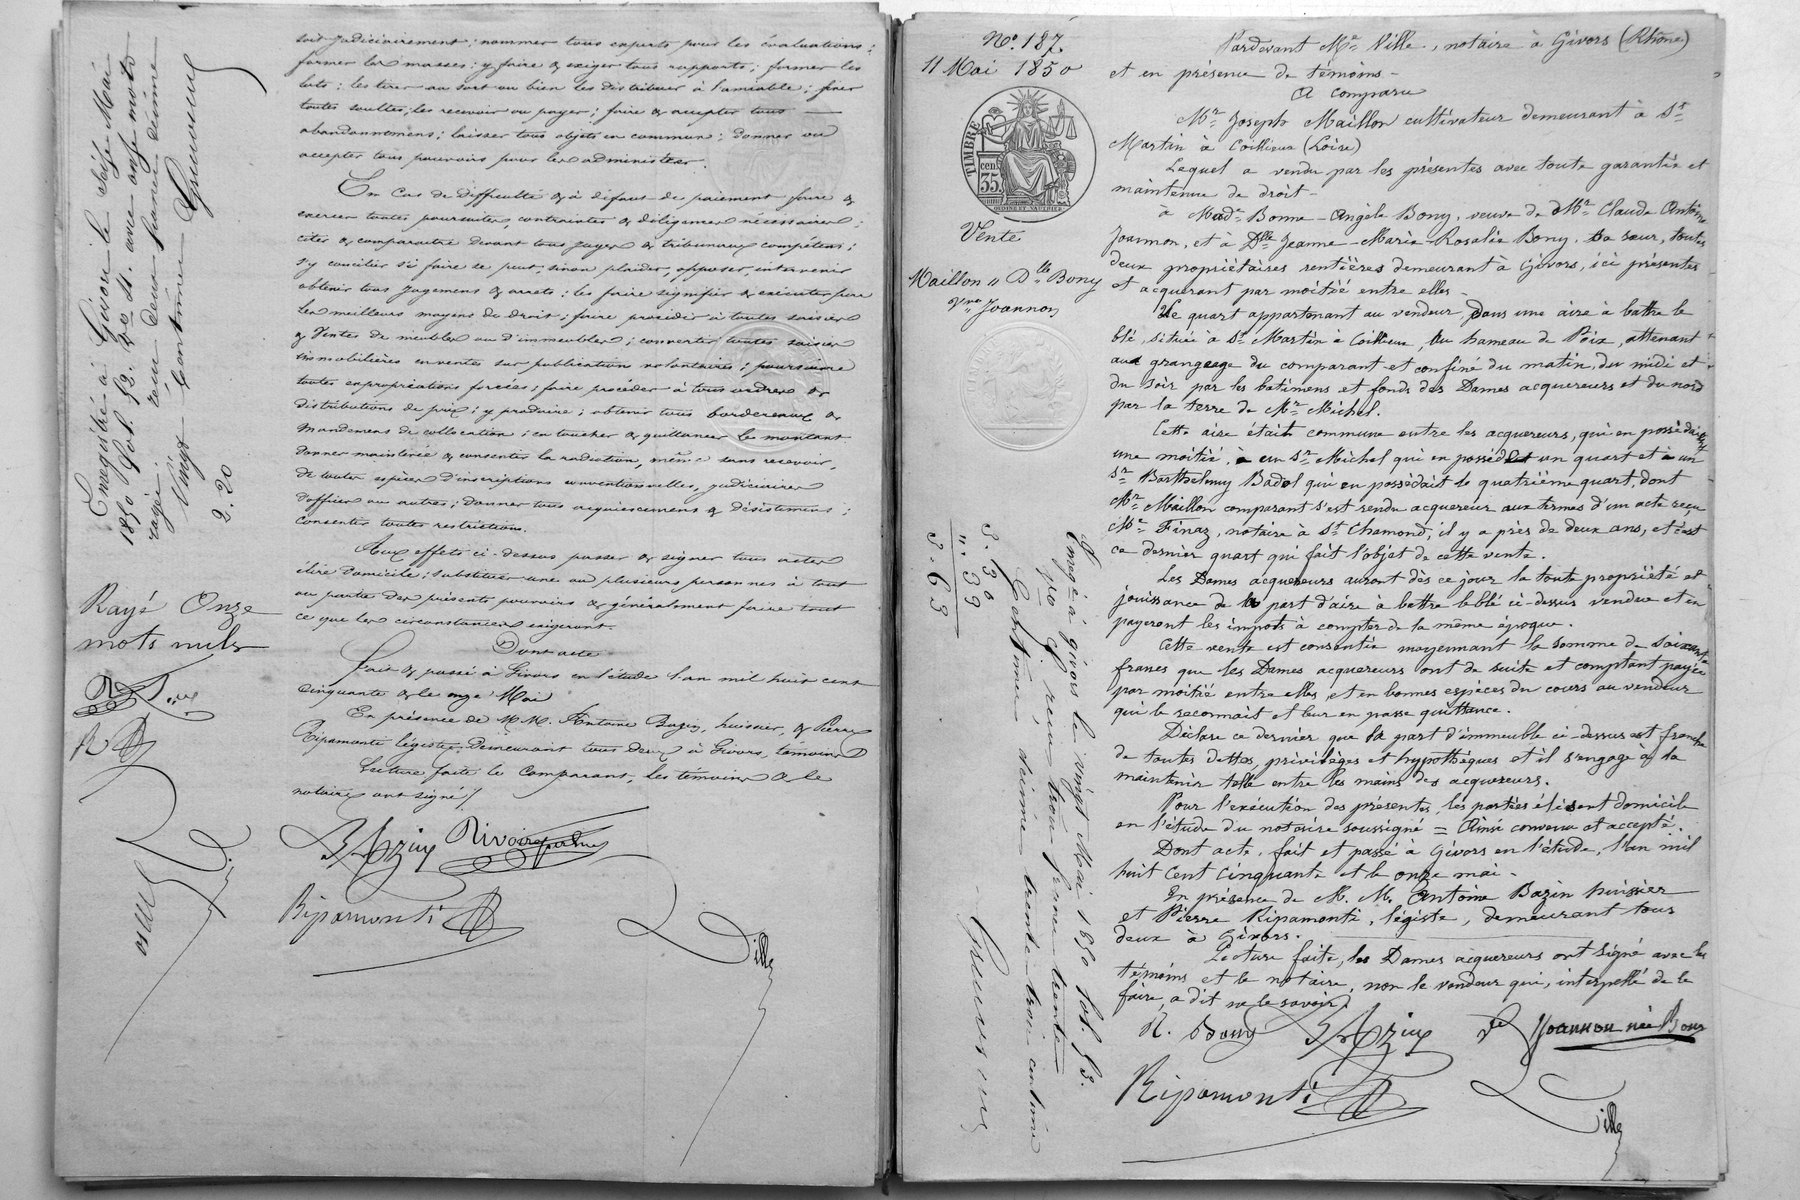 soit judiciairement ; nommer tous experts pour les évaluations ;
former les masses ; y faire & exiger tous rapports ; former les
lots ; les tirer au sort ou bien les distribuer à l'amiable ; fixer
toutes soultes, les recevoir ou payer ; faire & accepter tous
abandonnemens ; laisser tous objets en commun ; donner ou
accepter tous pouvoirs pour les administrer.
En cas de difficulté & à défaut de paiement faire &
exercer toutes poursuites, contraintes & diligences nécessaires ;
citer & comparaître devant tous juges & tribunaux compétens ;
s'y concilier si faire se peut, sinon plaider, opposer, intervenir
obtenir tous jugemens & arrets ; les faire signifier & exécuter par
les meilleurs moyens de droit ; faire procéder à toutes saisies
& ventes de meubles ou d'immeubles ; convertir toutes saisies
immobilières en ventes sur publication volontaires ; poursuivre
toutes expropriations forcées ; faire procéder à tous ordres &
distributions de prix ; y produire ; obtenir tous bordereaux &
mandemens de collocation ; en toucher & quittancer le montant
donner mainlevée & consentir la radiation, même sans recevoir,
de toutes espèces d'inscriptions conventionnelles, judiciaires
d'office ou autres ; donner tous acquiescemens & désistemens ;
consentir toutes restrictions.
Aux effets ci-dessus passer & signer tous actes
élire domicile ; substituer une ou plusieurs personnes à tout
ou partie des présents pouvoirs & généralement faire tout
ce que les circonstances exigeront.
Dont acte
Fait & passé à Givors en l'étude l'an mil huit cent
cinquante & le onze Mai
En présence de M.M. Antoine Bazin, huissier, & Pierre
Ripamonti légiste, demeurant tous deux à Givors, témoins
Lecture faite le comparant, les témoins & le
notaire ont signé /
Rivoire
Ripamonti
Ville
Enregistré à Givors le Seize Mai
1850 fol. 52. Vo
reçu deux francs
vingt centimes
2.20
Rayé Onze
mots nuls
No. 187.
11 Mai 1850
TIMBRE
cen.
35.
Vente
Maillon à Dlle Bony
Vve Joannon
Pardevant Me Ville, notaire à Givors (Rhône)
et en présence de témoins -
A comparu
Mr Joseph Maillon cultivateur demeurant à St
Martin à Coillieux (Loire)
Lequel a vendu par les présentes avec toute garantie et
maintenue de droit -
à Made Bonne-Angèle Bony, veuve de Mr Claude Antoine
Joannon, et à Dlle Jeanne-Marie-Rosalie Bony, sa sœur, toutes
deux propriétaires rentières demeurant à Givors, ici présentes
et acquérant par moitié entre elles -
Le quart appartenant au vendeur dans une aire à battre le
blé, située à St Martin à Coillieux, au hameau de Poix, attenant
aux grangeage du comparant et confiné du matin, du midi et
du soir par les batimens et fonds des Dames acquereurs et du nord
par la terre de Mr Michel.
Cette aire était commune entre les acquereurs, qui en possédaient
une moitié, à un Sr Michel qui en possédait un quart et à un
Sr Barthelemy Badol qui en possédait le quatrième quart, dont
Mr Maillon comparant s'est rendu acquereur aux termes d'un acte reçu
Me Finaz, notaire à St Chamond, il y a près de deux ans, et c'est
ce dernier quart qui fait l'objet de cette vente.
Les Dames acquereurs auront dès ce jour la toute propriété et
jouissance de la part d'aire à battre le blé ci-dessus vendue et en
payeront les impots à compter de la même époque.
Cette vente est consentie moyennant la somme de soixante
francs que les Dames acquereurs ont de suite et comptant payée
par moitié entre elles, et en bonnes espèces du cours au vendeur
qui le reconnait et leur en passe quittance.
Déclare ce dernier que la part d'immeuble ci-dessus est franche
de toutes dettes, privilèges et hypothèques et il s'engage à la
maintenir telle entre les mains des acquereurs.
Pour l'exécution des présentes, les parties élisent domicile
en l'étude du notaire soussigné = Ainsi convenu et accepté.
Dont acte, fait et passé à Givors en l'étude, l'an mil
huit cent cinquante et le onze mai -
En présence de M. M. Antoine Bazin huissier
et Pierre Ripamonti, légiste, demeurant tous
deux à Givors.
Lecture faite, les Dames acquereurs ont signé avec les
témoins et le notaire, non le vendeur qui, interpellé de le
faire, a dit ne le savoir /
R. Bony
Ve Joannon née Bony
Ripamonti
Ville
Enreg. à Givors le vingt Mai 1850 fol. 53.
Vo reçu trois francs trente
centimes décime trente-trois centimes
3.30
".33
3.63